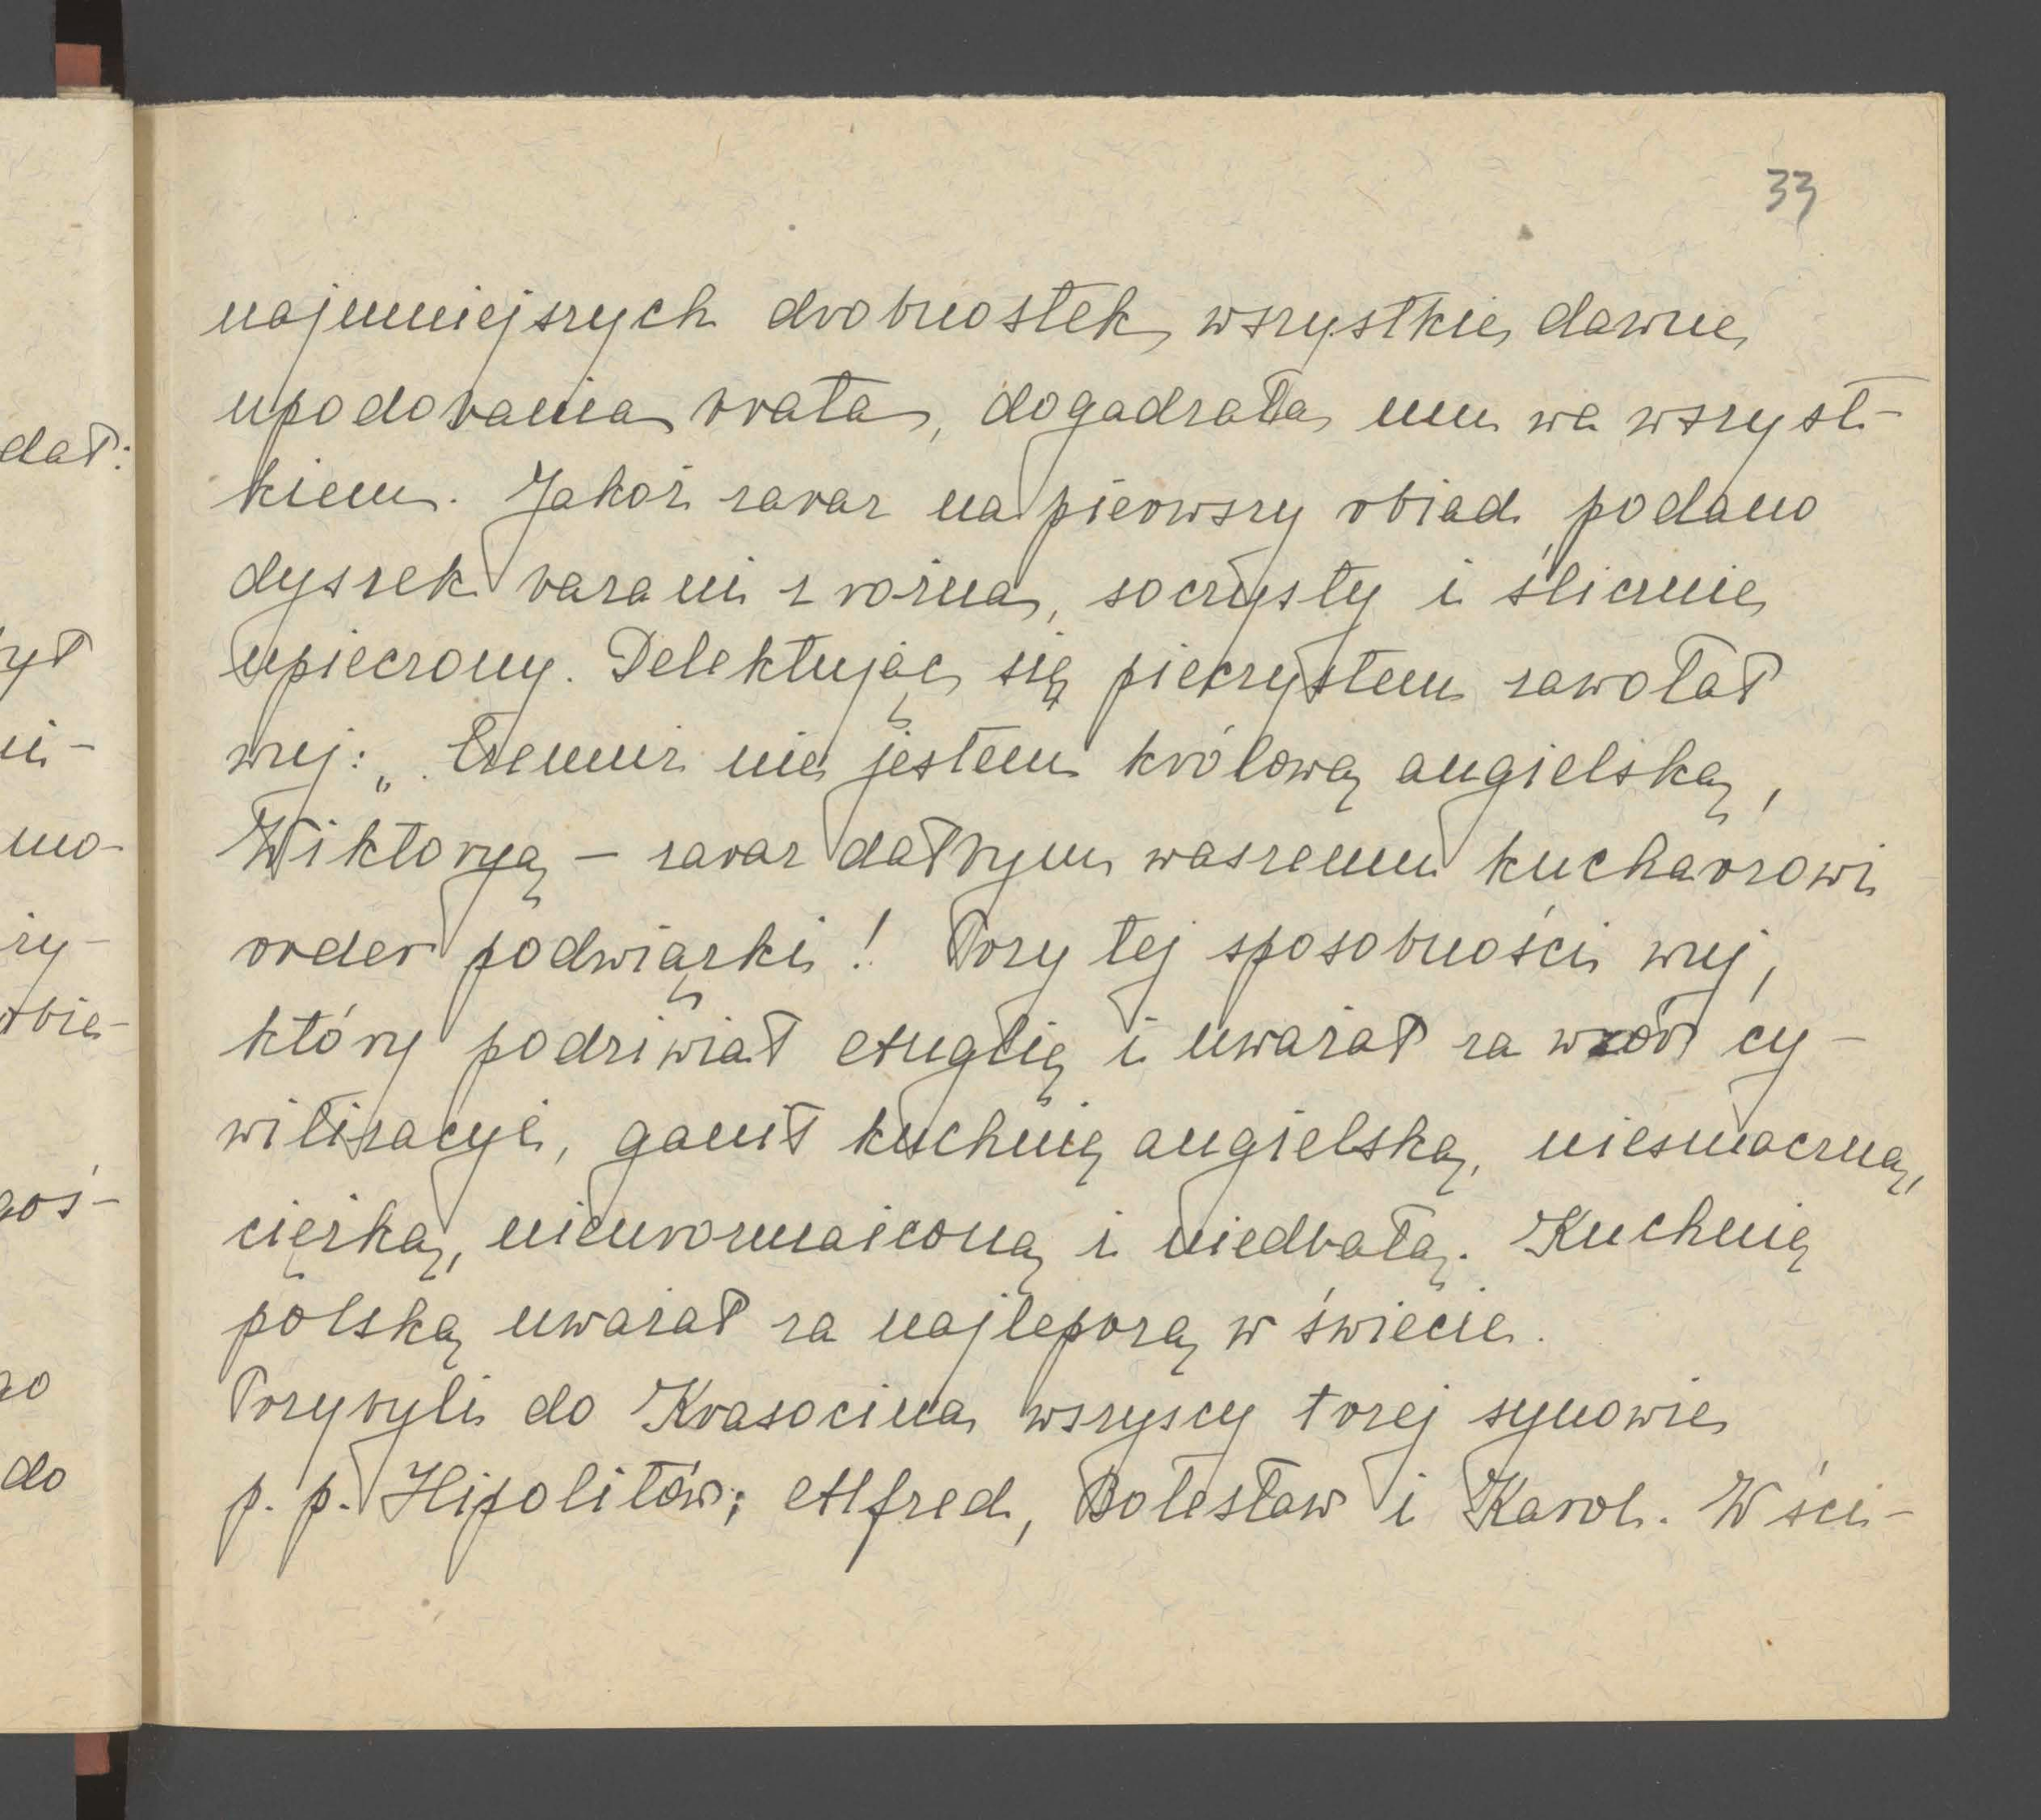 33
najmniejszych drobnostek, wszystkie dawne
upodobania brata, dogadzała mu we wszyst-
kiem. Jakoż zaraz na pierwszy obiad podano
dyszek barani z rożna, soczysty i ślicznie
upieczony. Delektując się pieczystem zawołał
wuj: „Czemuż nie jestem królową angielską,
Wiktoryą – zaraz dałbym waszemu kucharzowi
order podwiązki! Przy tej sposobności wuj,
który podziwiał Anglię i uważał za wzór cy-
wilizacyi, ganił kuchnię angielską, niesmaczną,
ciężką, nieurozmaiconą i niedbałą. Kuchnię
polską uważał za najlepszą w świecie.
Przybyli do Krasocina wszyscy trzej synowie
p. p. Hipolitów; Alfred, Bolesław i Karol. W ści-
dał:
ył
ni-
mo-
zy-
obie-
goś-
go
do